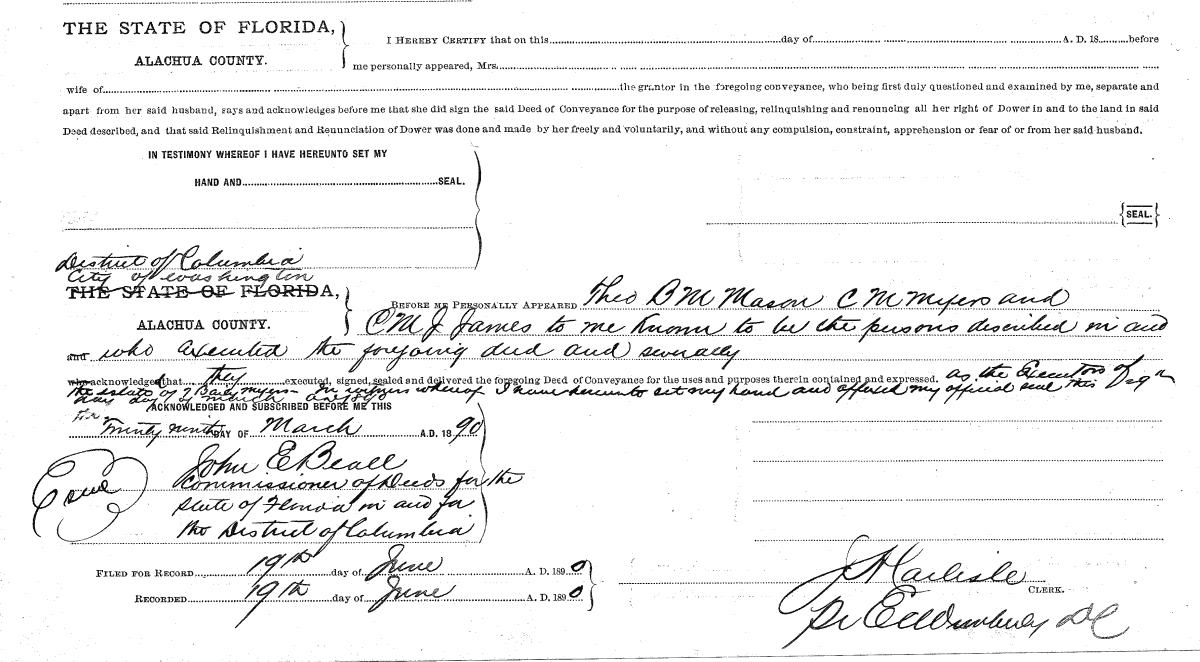 THE STATE OF FLORIDA,
ALACHUA COUNTY.
I HEREBY CERTIFY that on this day of A. D. 18 before
me personally appeared, Mrs.
wife of the grantor in the foregoing conveyance, who being first duly questioned and examined by me, separate and
apart from her said husband, says and acknowledges before me that she did sign the said Deed of Conveyance for the purpose of releasing, relinquishing and renouncing all her right of Dower in and to the land in said
Deed described, and that said Relinquishment and Renunciation of Dower was done and made by her freely and voluntarily, and without any compulsion, constraint, apprehension or fear of or from her said husband.
IN TESTIMONY WHEREOF I HAVE HEREUNTO SET MY
HAND AND SEAL.
SEAL.
District of Columbia
City of Washington
THE STATE OF FLORIDA,
ALACHUA COUNTY.
BEFORE ME PERSONALLY APPEARED Theo B M Mason C M Myers and
C M J James to me Known to be the persons described in and
and who executed the foregoing deed and severally
who acknowledged that they executed, signed, sealed and delivered the foregoing Deed of Conveyance for the uses and purposes therein contained and expressed. as the Executors of
the estate of myers In witness whereof I have hereunto set my hand and affixed my official seal this
day of March
ACKNOWLEDGED AND SUBSCRIBED BEFORE ME THIS
Twenty ninth DAY OF March A.D. 1890
John E Beall
Commissioner of Deeds for the
State of Florida in and for
the District of Columbia
FILED FOR RECORD 19th day of June A. D. 1890
RECORDED 19th day of June A. D. 1890
Carlisle
CLERK.
DC